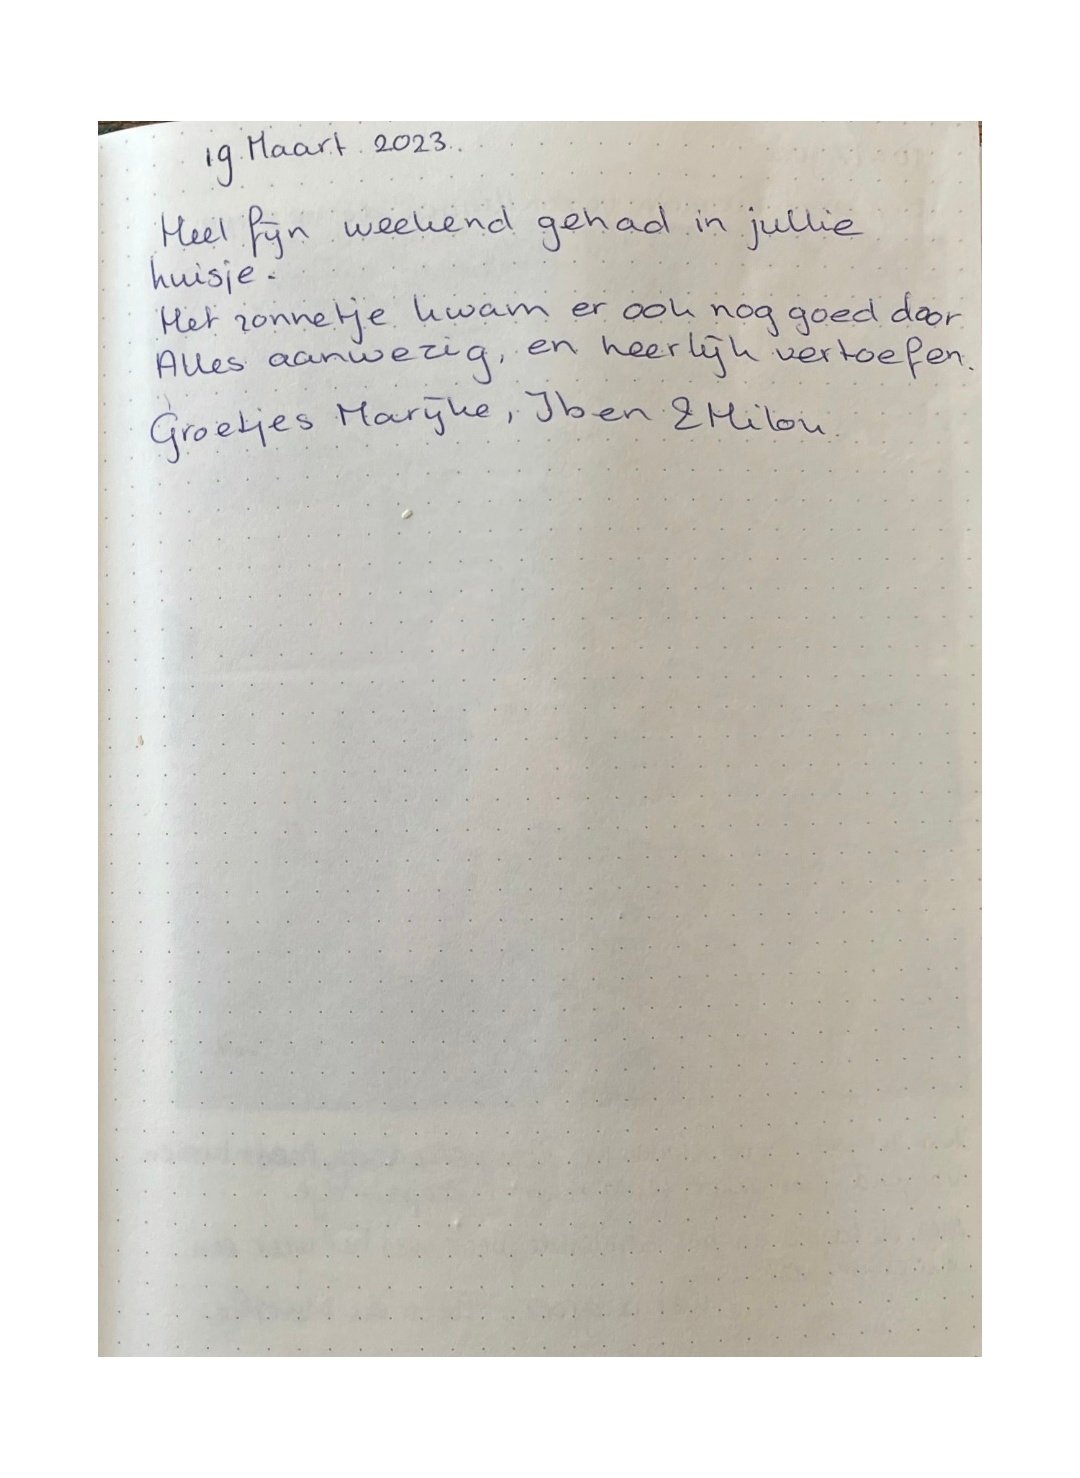 19 Maart 2023.
Heel fijn weekend gehad in jullie
huisje.
Het zonnetje kwam er ook nog goed door
Alles aanwezig, en heerlijk vertoefen.
Groetjes Marijke, Iben & Milou